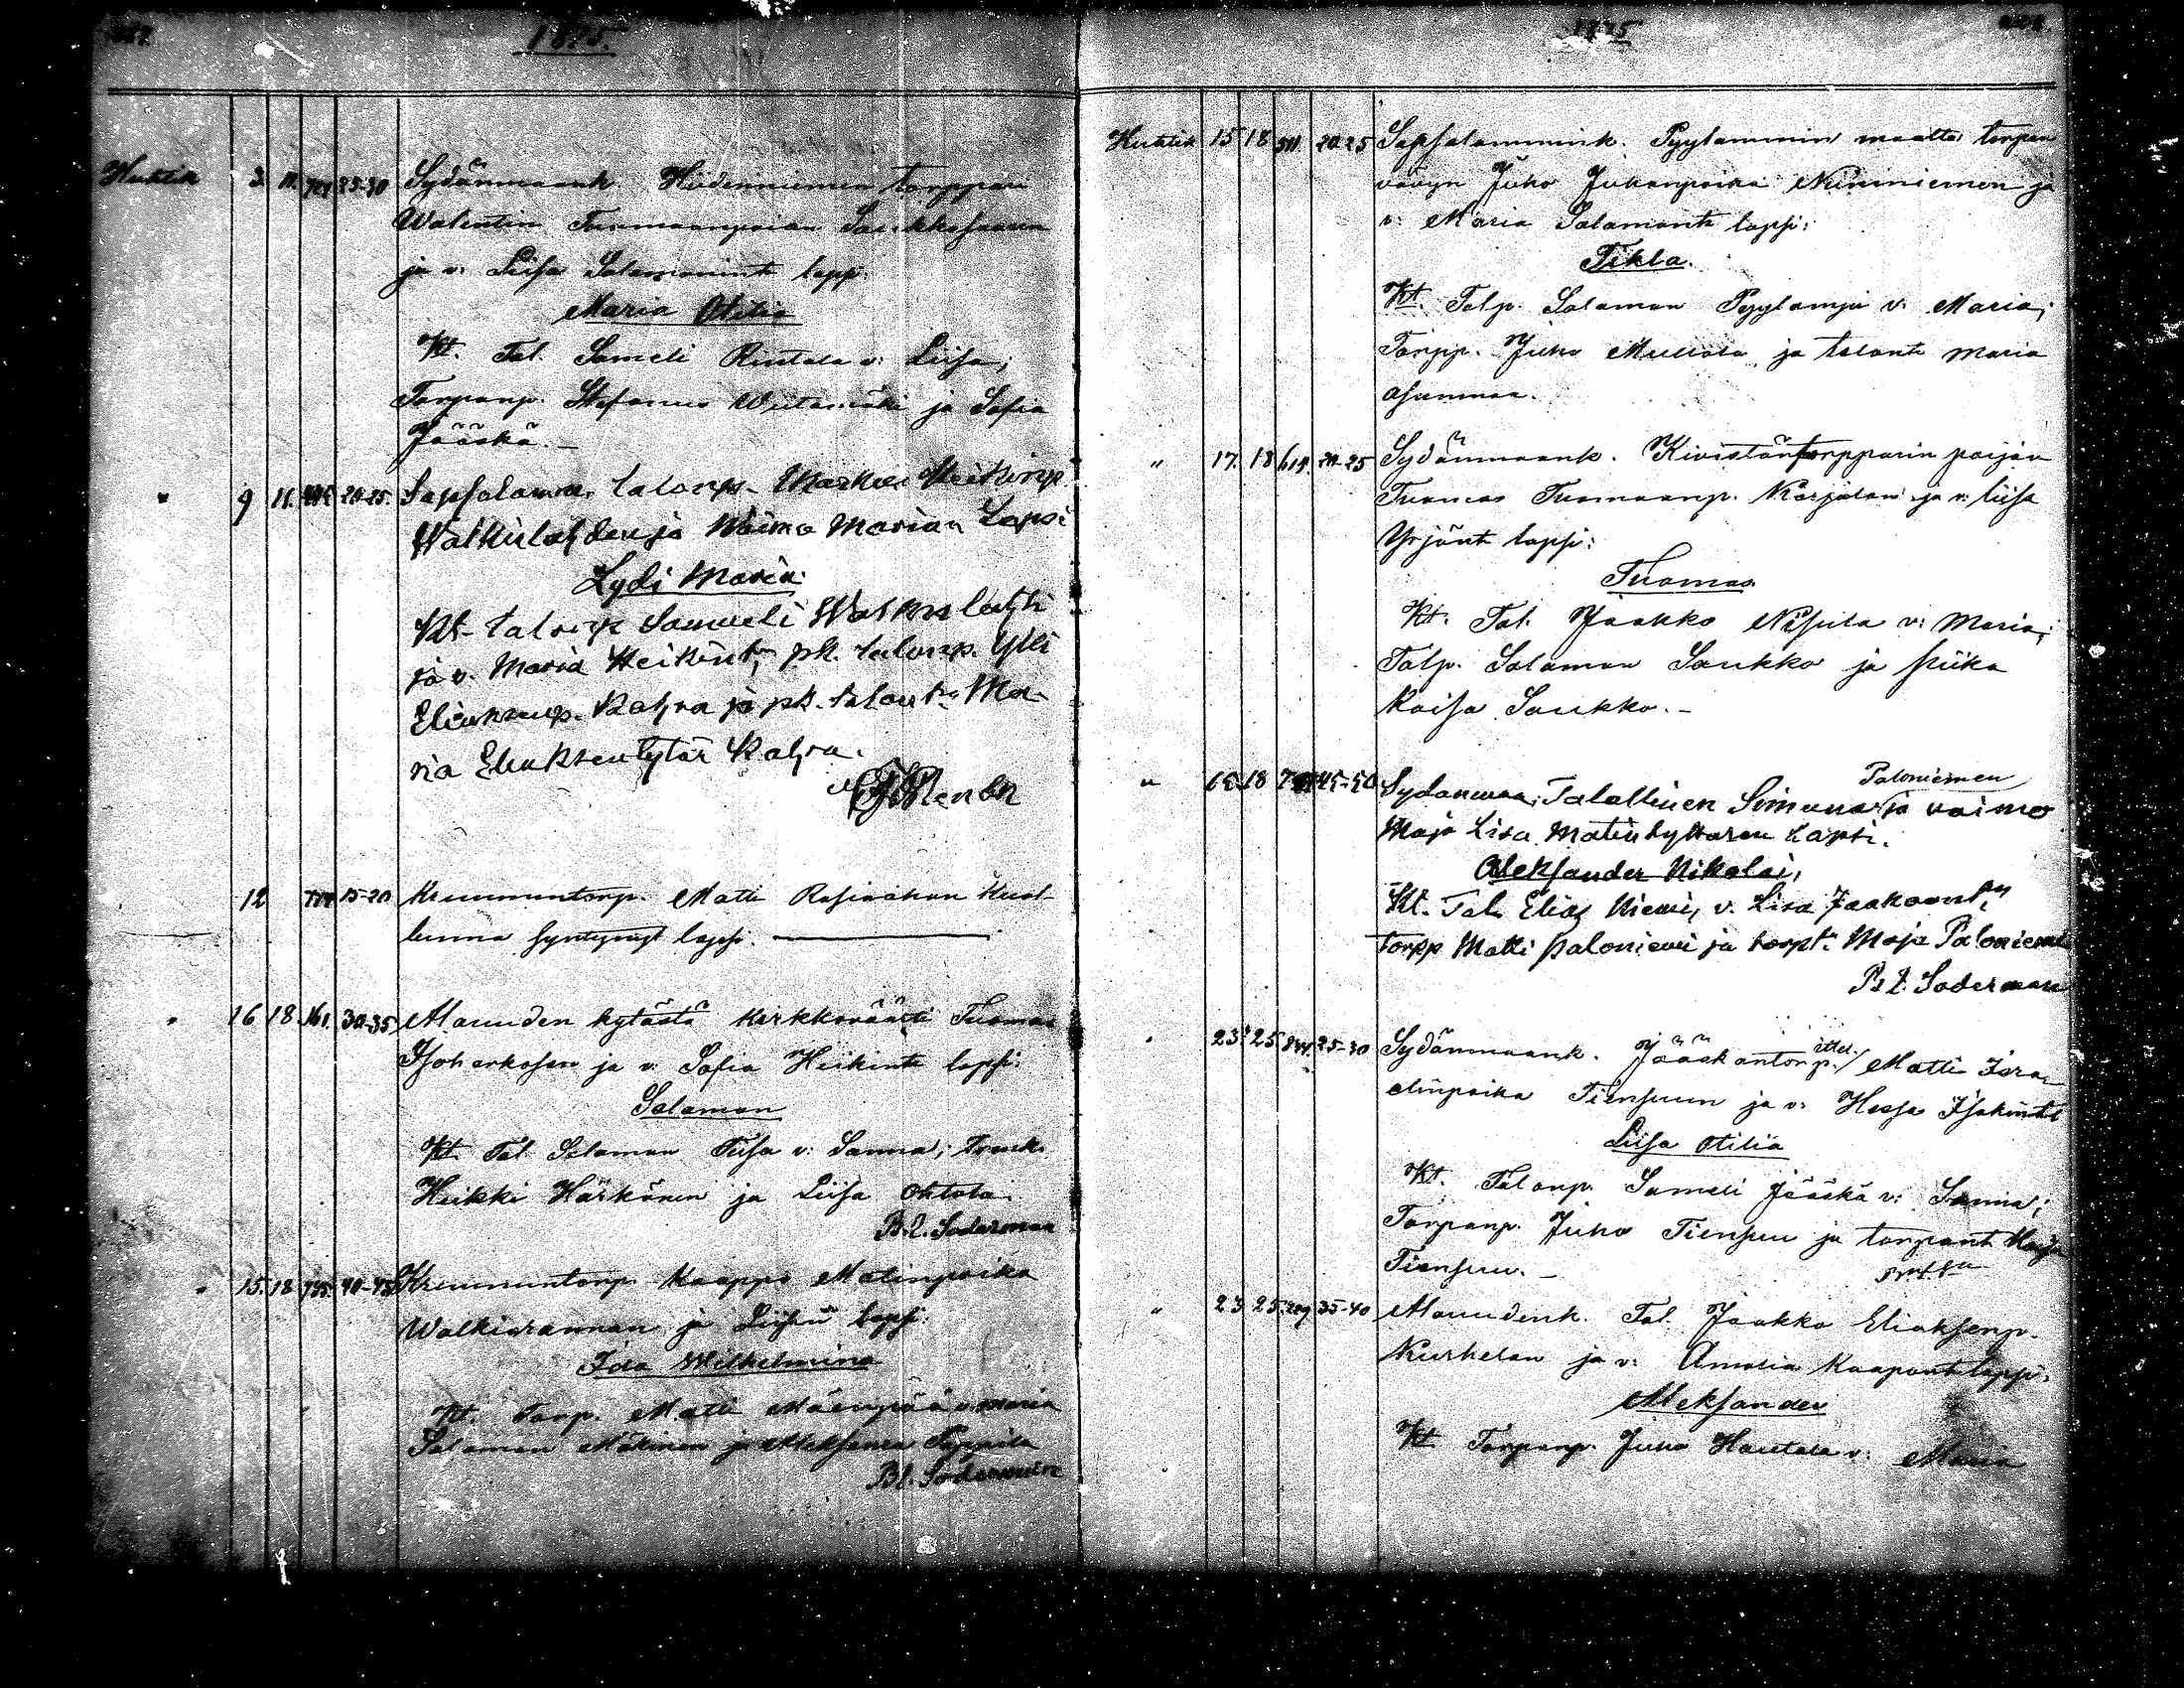 1875.
Huhtik 3. 11. 35-30 Sydänmaank. Hiidenniemen torppari
Walentin Tuomaanpoian Saukkosaaren
ja v: Liisa Salamonint laps.
Maria Otilia
Kt. Tal. Sameli Rintala v: Liisa;
Torpanp. Stefanus Wiitamäki ja Sofia
Jääskä.
" 9 11. 20-25. Sapsalamm. talonp. Markus Heikinp
Walkulahden ja Waimo Marian Lapsi
Lydi Maria
Kt. talonp Samueli Walkulahti
ja v. Maria Heikint; pk. talonp. Ylli
Eliaksenp. Kahra ja pk. talont. Ma-
ria Eliaksentytär Kahra.
12 15-20 Kruununtorp. Matti Rasinahan kuol-
lunna syntynyt lapsi.
" 16 18. 161. 30-35 Alauuden kylästä kirkkoväärti Tuomas
Isoharkosen ja v: Sofia Heikint lapsi:
Salaman
Kt. Tal. Salaman Tiisa v: Sanna;
Heikki Härkönen ja Liisa Ohtola.
B. L. Soderman
" 15. 18 735. 40-45 Kruununtorp. Kaappo Matinpoika
Walkiarannan ja Liisan lapsi:
Ida Wilhelmina
Kt. Torp. Matti Mäenpää v. Maria
Salaman Mäkinen ja Aleksanra Lappila
B L. Soderman
1875
Huhtik 15 18 511. 20-25 Sapsalammink. Pyylammin maalta torpan
vävyn Juho Juhanpoika Nininiemen ja
v: Maria Salamont lapsi:
Tikla.
Kt. Talp. Salaman Pyylampi v: Maria;
Torpp. Juho Mullola ja talont Maria
Asunmaa.
" 17. 18 614. 20-25 Sydänmaank. Kivistöntorpparin poijan
Tuomas Tuomaanp. Karjalan ja v: Liisa
Yrjönt lapsi:
Tuomas
Kt. Tal. Jaakko Nisula v: Maria;
Talp. Salaman Saukko ja piika
Kaisa Saukko.
" 18 45-50 Sydanmaa; Talallinen Simuna Paloniemen ja vaimo
Maja Lisa Matintyttaren Lapsi.
Aleksander Nikolai,
Kt. Tal. Elias Niemi, v. Lisa Jaakoont;
torpp Matti paloniemi ja torpt: Maja Paloniemi
B. L. Soderman
" 23 25. 844. 25-30 Sydänmaank. Jääskäntorp. ittel. Matti Isra-
elinpoika Tiensuun ja v: Hessa Isakintit
Liisa Otilia
Kt. Talonp. Sameli Jääskä v: Sanna;
Torpanp. Juho Tiensuu ja torpant Kaisa
Tiensuu.
" 23. 25. 209 35-40 Alauudenk. Tal. Jaakko Eliaksenp.
Kurhelan ja v: Amalia Kaapont lapsi:
Aleksander
Kt. Torpanp. Juho Hautala v: Maria